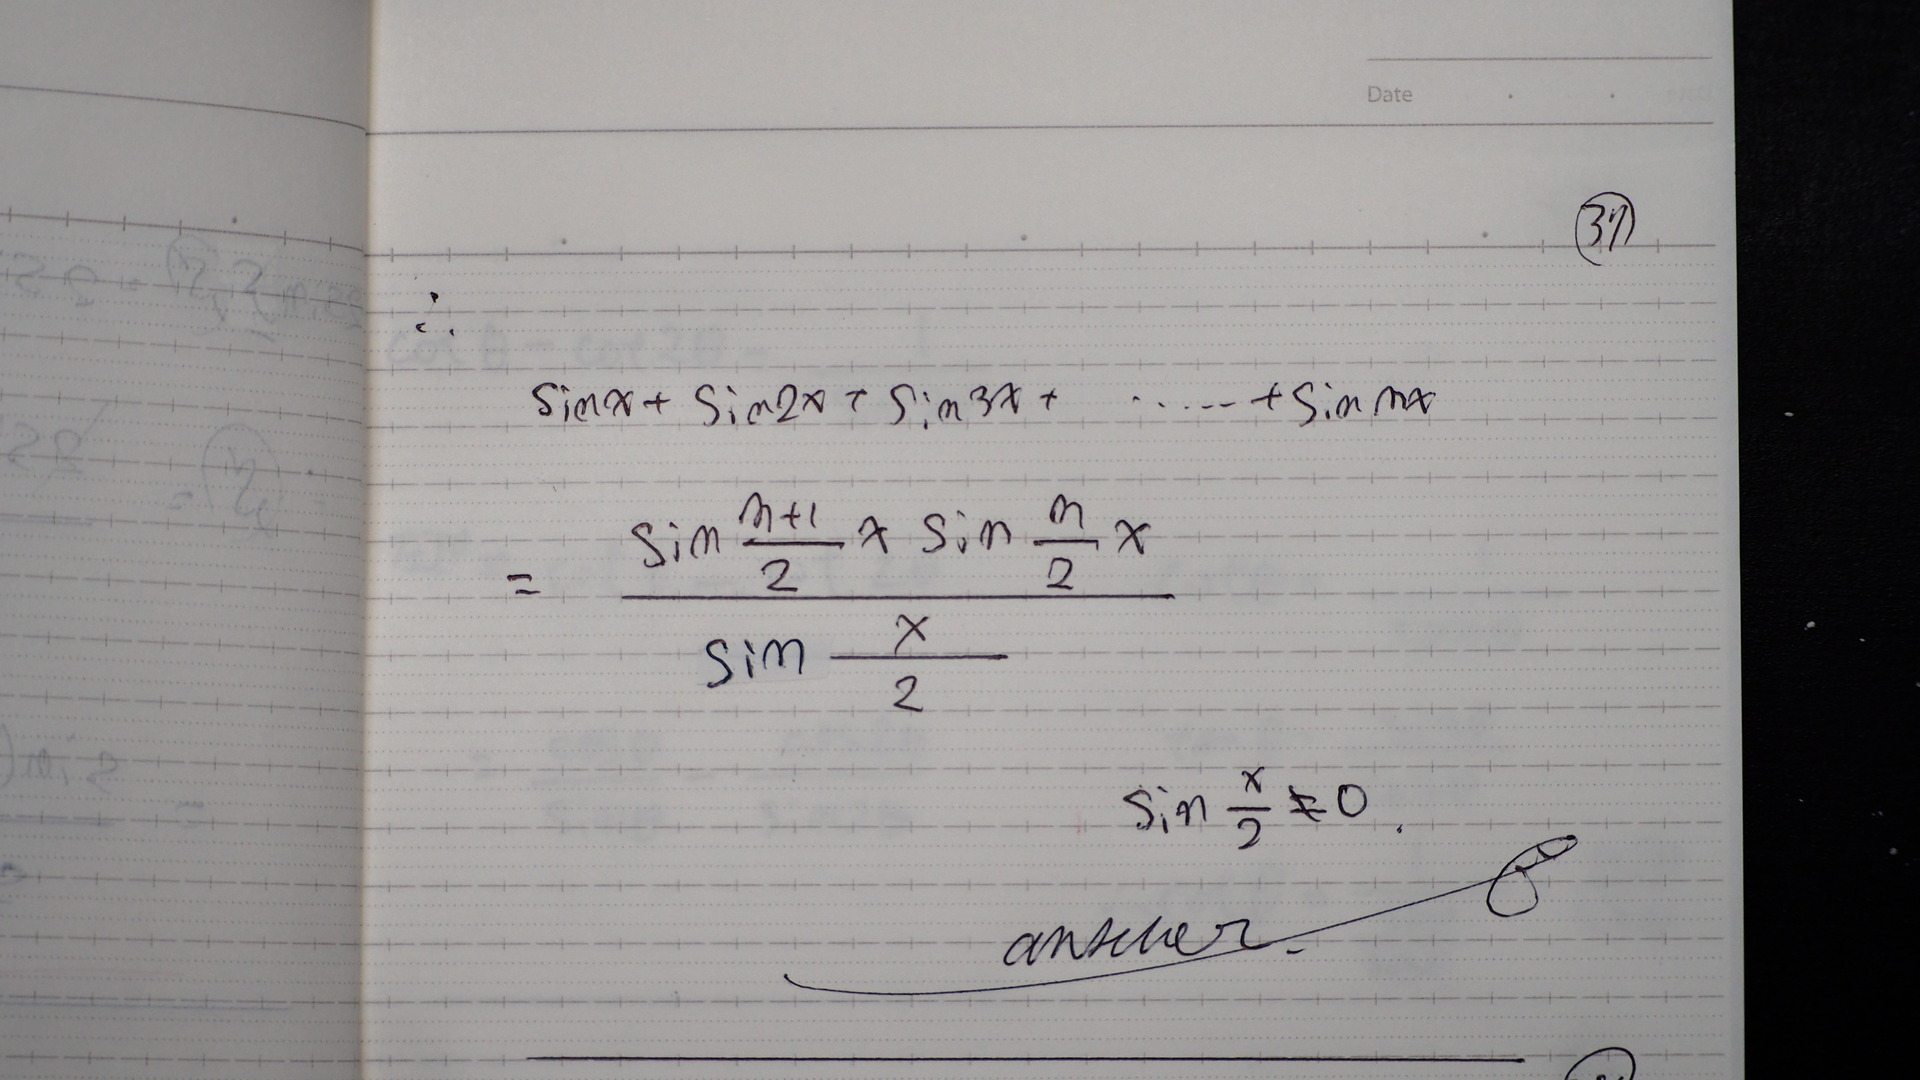 Date
37
∴
sinx + sin2x + sin3x + ...... + sin nx
= (sin (n+1)/2 x sin n/2 x) / (sin x/2)
sin x/2 ≠ 0.
answer.